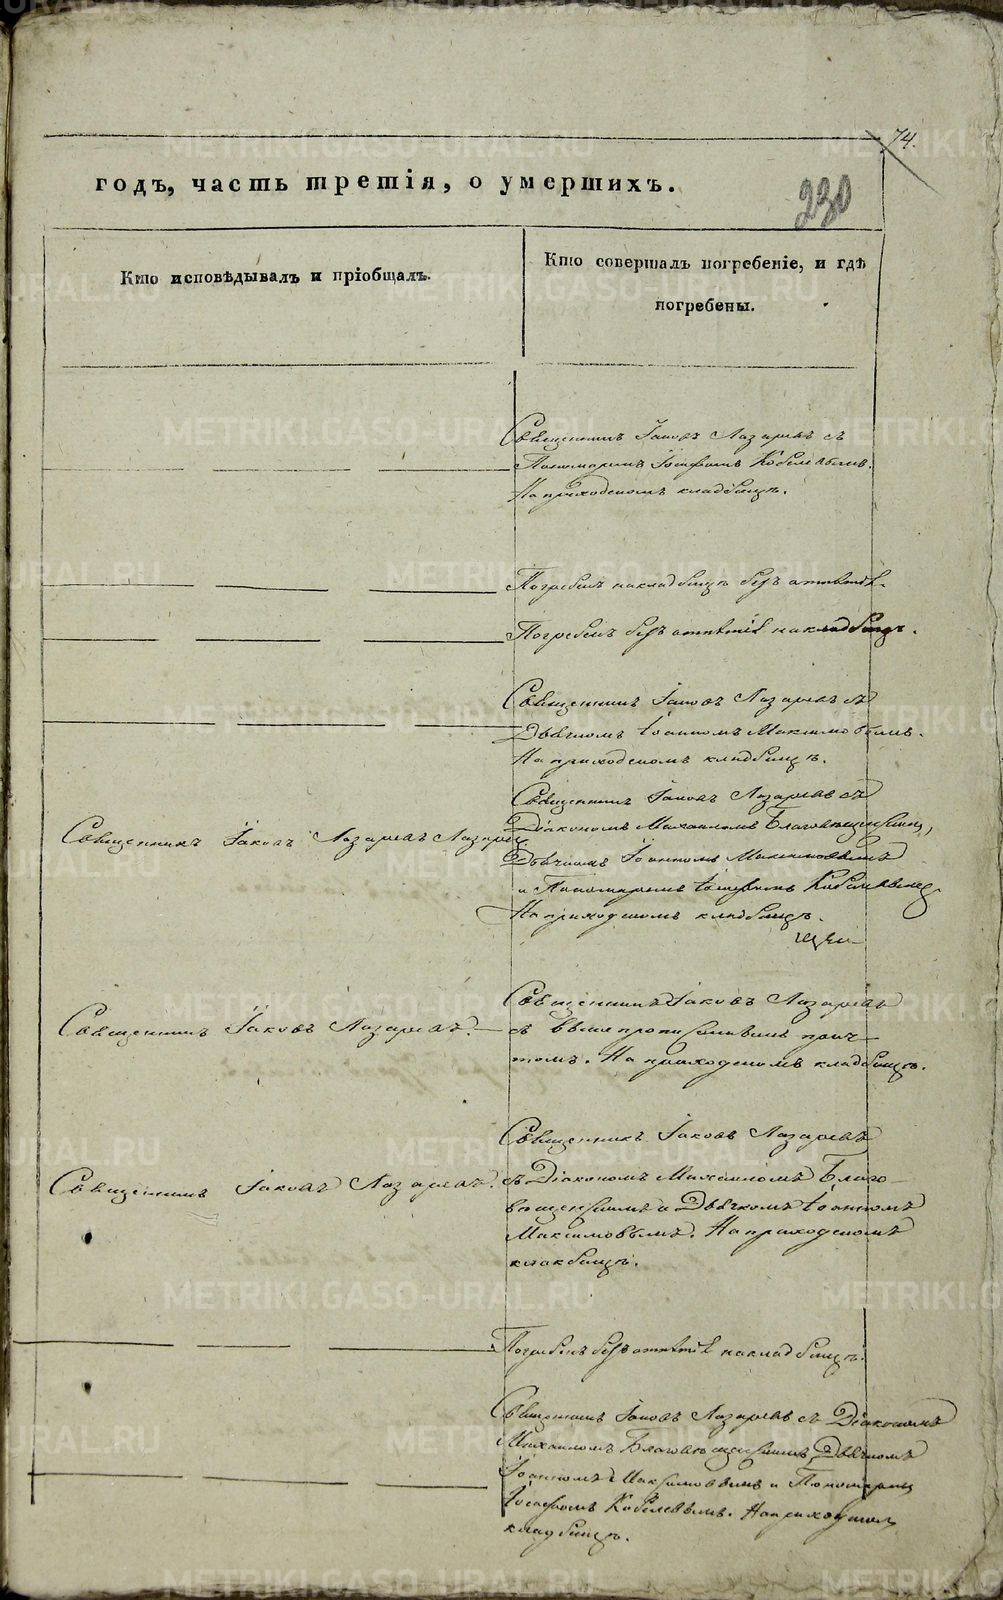 74.
годъ, часть третія, о умершихъ.
230
Кто исповѣдывалъ и пріобщалъ.
Кто совершалъ погребеніе, и гдѣ
погребены.
Священникъ Іаковъ Лазаревъ съ
Пономаремъ Іоасафомъ Кобелевымъ.
На приходскомъ кладбищѣ.
Погребенъ на кладбищѣ безъ отпѣтія.
Погребенъ безъ отпѣтія на кладбищѣ.
Священникъ Іаковъ Лазаревъ съ
Дьячкомъ Іоанномъ Максимовымъ.
На приходскомъ кладбищѣ.
Священникъ Іаковъ Лазаревъ Лазаревъ
Священникъ Іаковъ Лазаревъ съ
Діакономъ Михаиломъ Благовѣщенскимъ,
Дьячкомъ Іоанномъ Максимовымъ
и Пономаремъ Іоасафомъ Кобелевымъ
На приходскомъ кладбищѣ.
Священникъ Іаковъ Лазаревъ.
Священникъ Іаковъ Лазаревъ
съ вышепрописаннымъ прич-
томъ. На приходскомъ кладбищѣ.
Священникъ Іаковъ Лазаревъ.
Священникъ Іаковъ Лазаревъ
съ Діакономъ Михаиломъ Благо-
вѣщенскимъ и Дьячкомъ Іоанномъ
Максимовымъ. На приходскомъ
кладбищѣ.
Погребенъ безъ отпѣтія на кладбищѣ.
Священникъ Іаковъ Лазаревъ съ Діакономъ
Михаиломъ Благовѣщенскимъ, Дьячкомъ
Іоанномъ Максимовымъ и Пономаремъ
Іоасафомъ Кобелевымъ. На приходскомъ
кладбищѣ.
METRIKI.GASO-URAL.RU